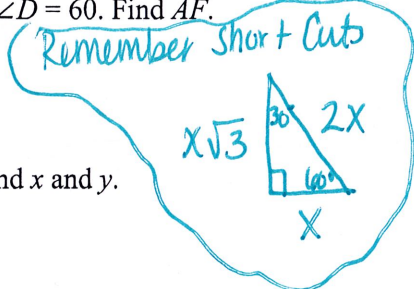 ∠D = 60. Find AF.
Remember Short Cuts
30°
2x
x√3
60°
nd x and y.
x